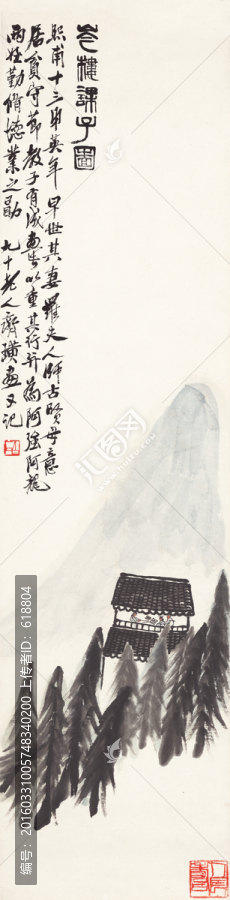 樓課子圖
熙甫十三弟英年早世其妻羅夫人師古賢母意
居貧守節教子有成畫此以重其行并為阿強阿龍
兩姪勤脩德業之勖 九十老人齊璜畫又記
汇图网
编号：20160331005748340200 上传者ID：618804